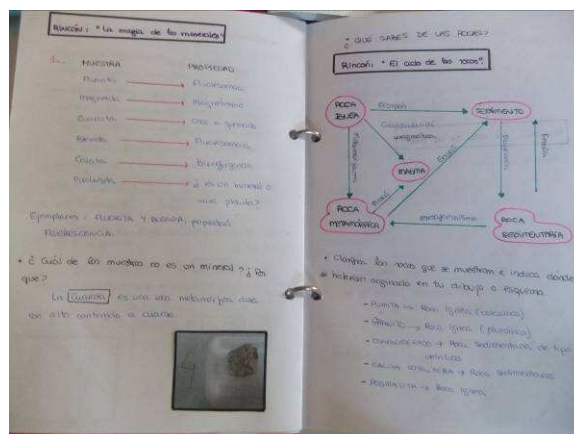 RINCÓN: "La magia de los minerales"
1.. MUESTRA PROPIEDAD
Fluorita → Fluorescencia
magnetita → magnetismo
Cuarcita →
Blenda → Fluorescencia
Calcita → Birrefringencia
Pirolusita → ¿ es un mineral o
una planta?
Ejemplares: FLUORITA Y BLENDA, propiedad
FLUORESCENCIA.
• ¿ Cuál de las muestras no es un mineral? ¿ Por
qué?
La Cuarcita es una roca metamórfica dura
con alto contenido a cuarzo.
4
• ¿ QUÉ SABES DE LAS ROCAS?
Rincón: "El ciclo de las rocas".
ROCA
IGNEA
Erosión
SEDIMENTO
magmatica
Metamorfismo
MAGMA
Fusión
Erosión
Diagénesis
Erosión
ROCA
METAMÓRFICA
metamorfismo
ROCA
SEDIMENTARIA
• Clasifica las rocas que se muestran e indica dónde
se habrían originado en tu dibujo o esquema
- → Roca Ignea (volcánica)
- GRANITO → Roca Ignea (plutónica)
- CONGLOMERADO → Roca Sedimentaria de tipo
detrítica
- CALIZA → Roca Sedimentaria
- PEGMATITA → Roca Ignea